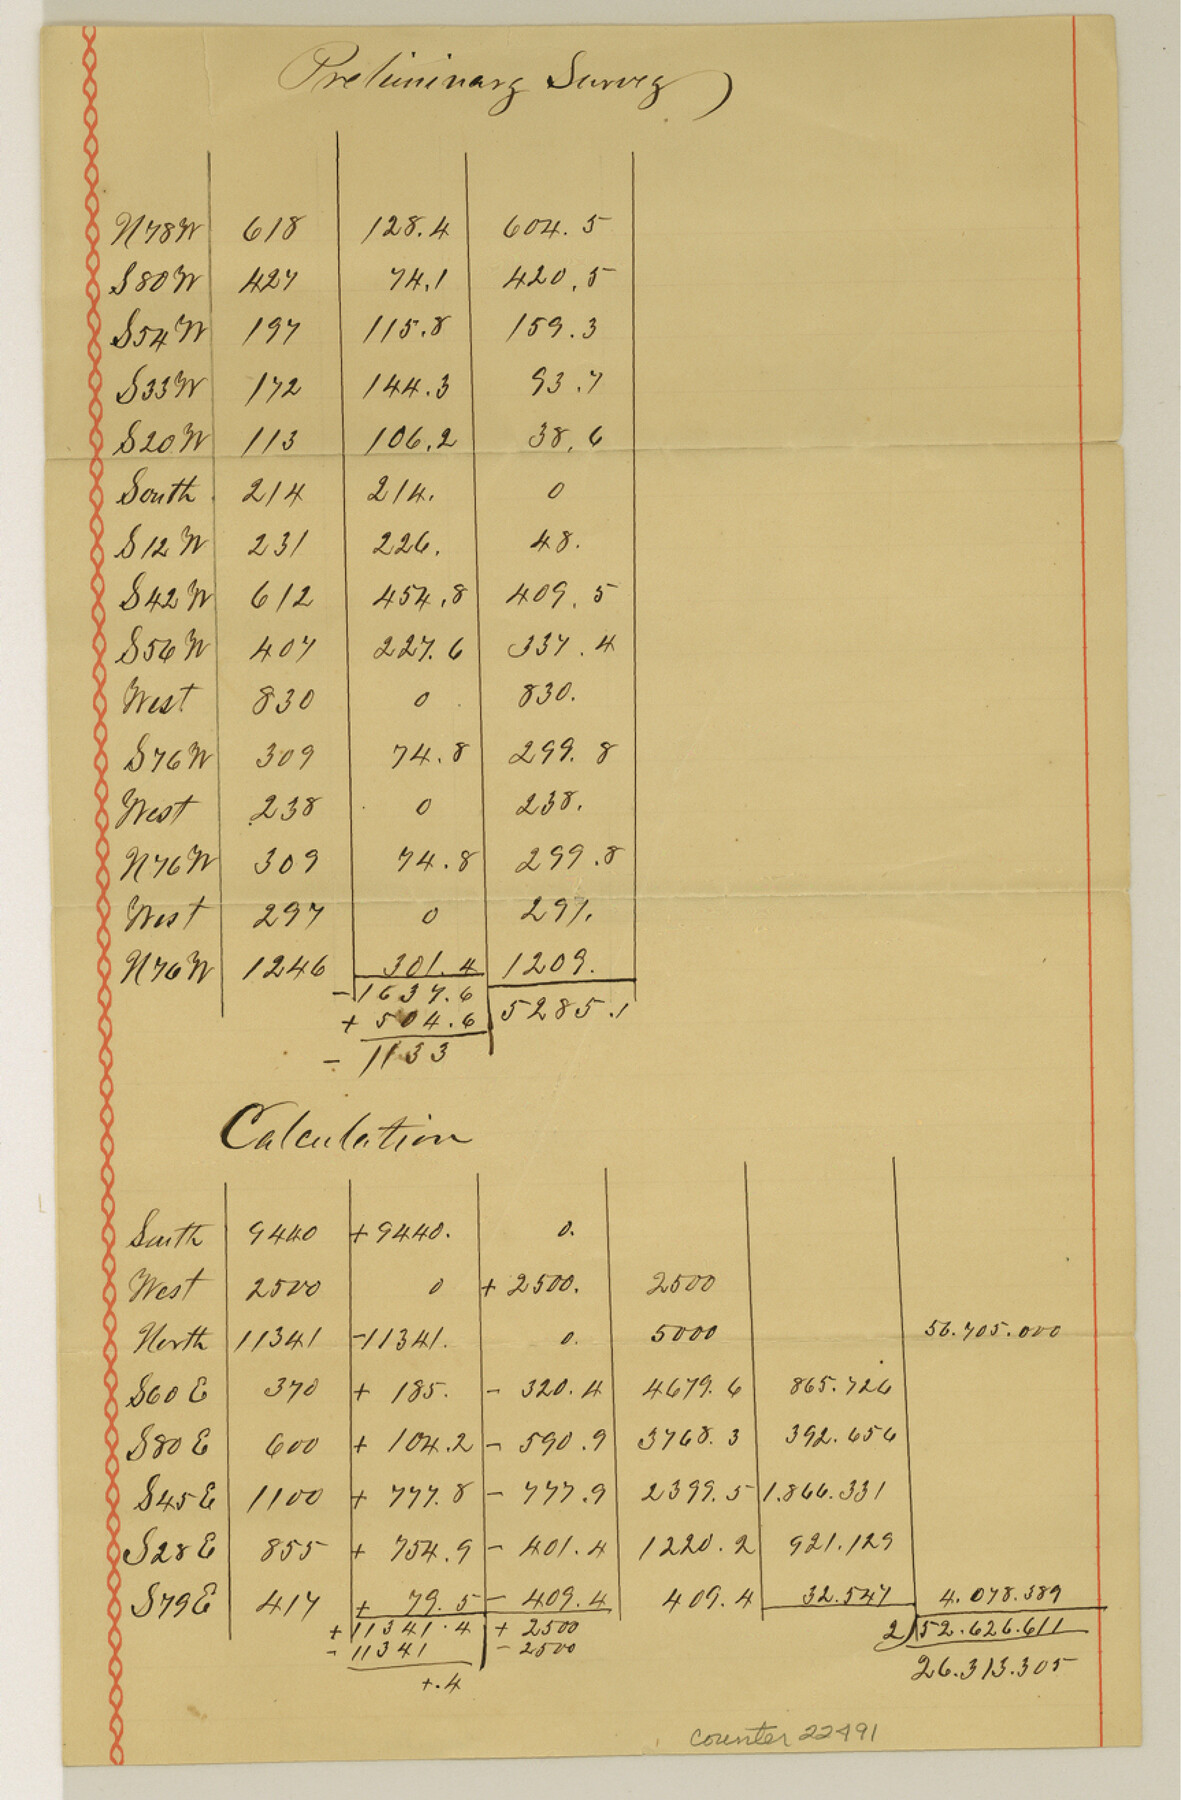 Preliminary Survey
N78W 618 128.4 604.5
S80W 427 74.1 420.5
S54W 197 115.8 159.3
S33W 172 144.3 93.7
S20W 113 106.2 38.6
South 214 214. 0
S12W 231 226. 48.
S42W 612 454.8 409.5
S56W 407 227.6 337.4
West 830 0 830.
S76W 309 74.8 299.8
West 238 0 238.
N76W 309 74.8 299.8
West 297 0 297.
N76W 1246 301.4 1209.
-1637.6 5285.1
+ 504.6
- 1133
Calculation
South 9440 +9440. 0.
West 2500 0 + 2500. 2500
North 11341 -11341. 0. 5000 56.705.000
S60E 370 + 185. - 320.4 4679.6 865.726
S80E 600 + 104.2 - 590.9 3768.3 392.656
S45E 1100 + 777.8 - 777.9 2399.5 1.866.331
S28E 855 + 754.9 - 401.4 1220.2 921.129
S79E 417 + 79.5 - 409.4 409.4 32.547 4.078.389
+ 11341.4 + 2500 2)52.626.611
- 11341 - 2500
+.4 26.313.305
counter 22491